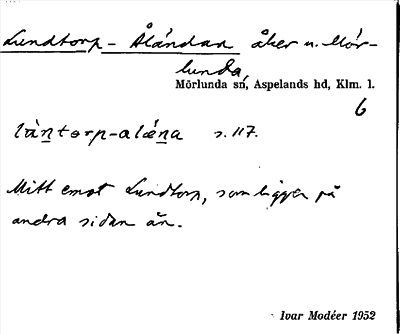 Lundtorp - Ålándan åker u. Mör-
lunda,
Mörlunda sn, Aspelands hd, Klm. l.
6
làntorp-alǽna s. 117.
Mitt emot Lundtorp, som ligger på
andra sidan ån.
Ivar Modéer 1952